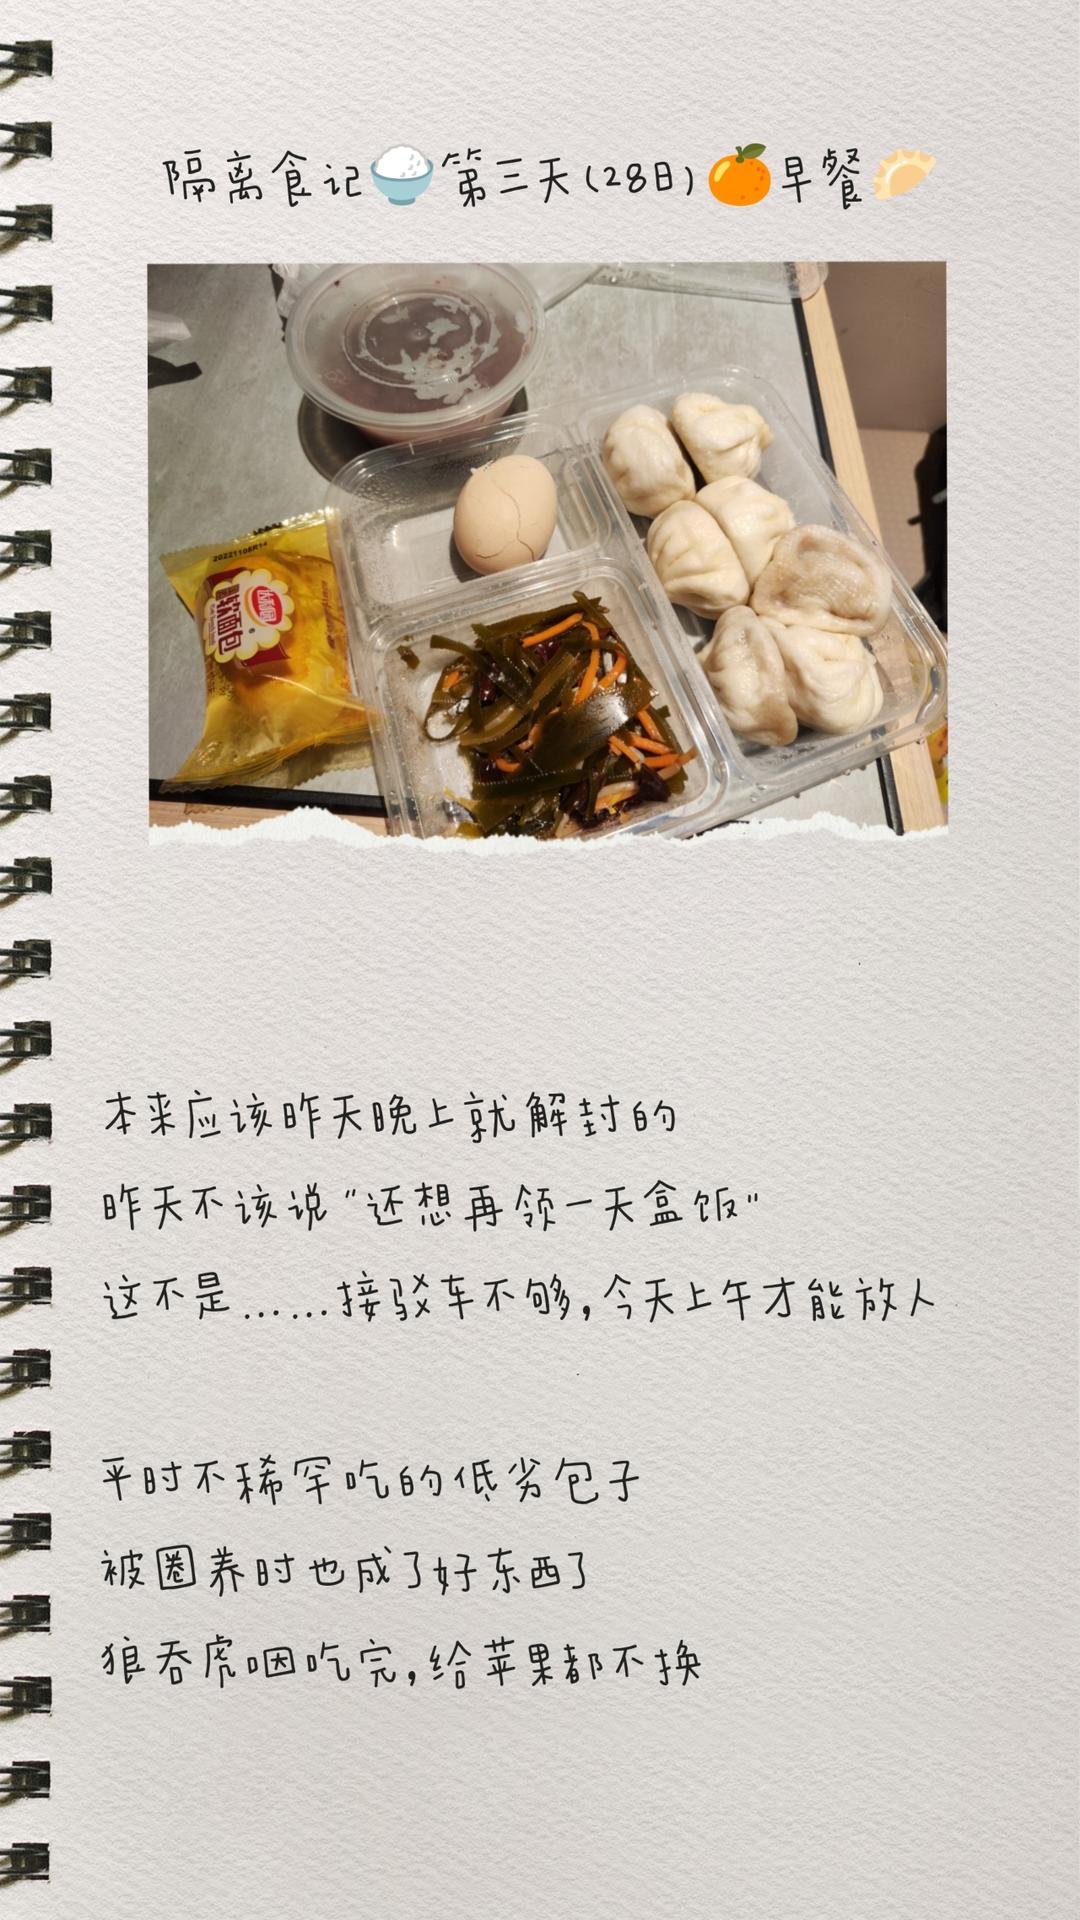 隔离食记🍚第三天(28日)🍊早餐🥟
20221108R14
达利园
软面包
本来应该昨天晚上就解封的
昨天不该说“还想再领一天盒饭”
这不是……接驳车不够,今天上午才能放人
平时不稀罕吃的低劣包子
被圈养时也成了好东西了
狼吞虎咽吃完,给苹果都不换